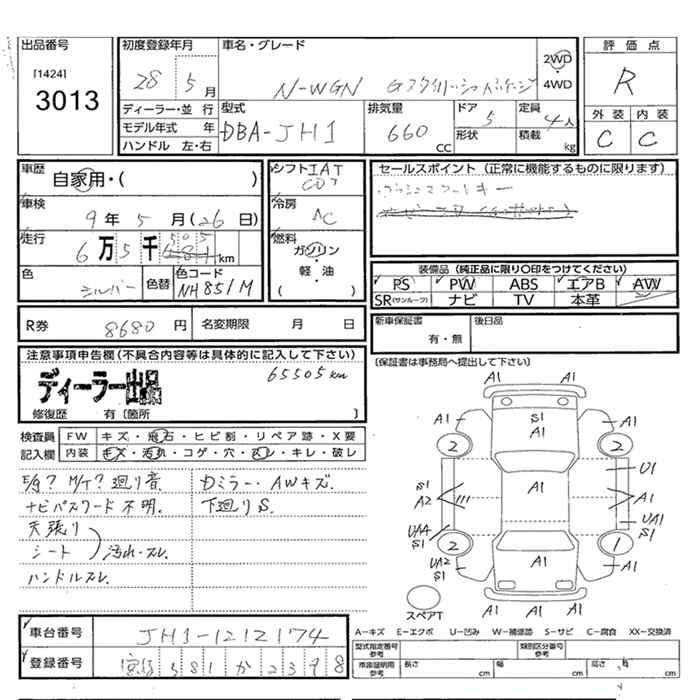 出品番号
[1424]
3013
初度登録年月
28 5月
車名・グレード
N-WGN Gスタイリッシュパッケージ
2WD
4WD
評価点
R
外装 内装
C C
ディーラー・並行
モデル年式 年
ハンドル 左・右
型式
DBA-JH1
排気量
660 CC
ドア 5
形状
定員 4人
積載 kg
車歴
自家用・( )
車検
9年5月(26日)
走行
6万5千505km
色
シルバー
色替
色コード
NH851M
シフト IAT
CVT
冷房
AC
燃料
ガソリン
軽・油
( )
セールスポイント (正常に機能するものに限ります)
装備品 (純正品に限り○印をつけてください)
PS PW ABS エアB AW
SR(サンルーフ) ナビ TV 本革
R券 8680円 名変期限 月 日
新車保証書
有・無
後日品
注意事項申告欄(不具合内容等は具体的に記入して下さい)
ディーラー出品
65505km
修復歴 有〔箇所 〕
〔保証書は事務局へ提出して下さい〕
検査員 FW キズ・飛石・ヒビ割・リペア跡・X要
記入欄 内装 キズ・汚れ・コゲ・穴・スレ・キレ・破レ
E/g? M/T? 廻り音
ナビパスワード不明.
天張り
シート
汚れ・スレ.
ハンドルスレ.
Dミラー・AWキズ.
下廻りS.
A1 A1
A1 S1 A1 A1
2 2
S1 A2 A1 U1
A1
UA4 S1 UA1 S1
2 1
UA2 S1 A1 A1
A1 A1 A1
スペアT
車台番号 JH1-1212174
登録番号 581か2398
A-キズ E-エクボ U-凹み W-補修跡 S-サビ C-腐食 XX-交換済
型式指定番号 参考
類別区分番号 参考
車庫証明用 参考 長さ cm 幅 cm 高さ cm